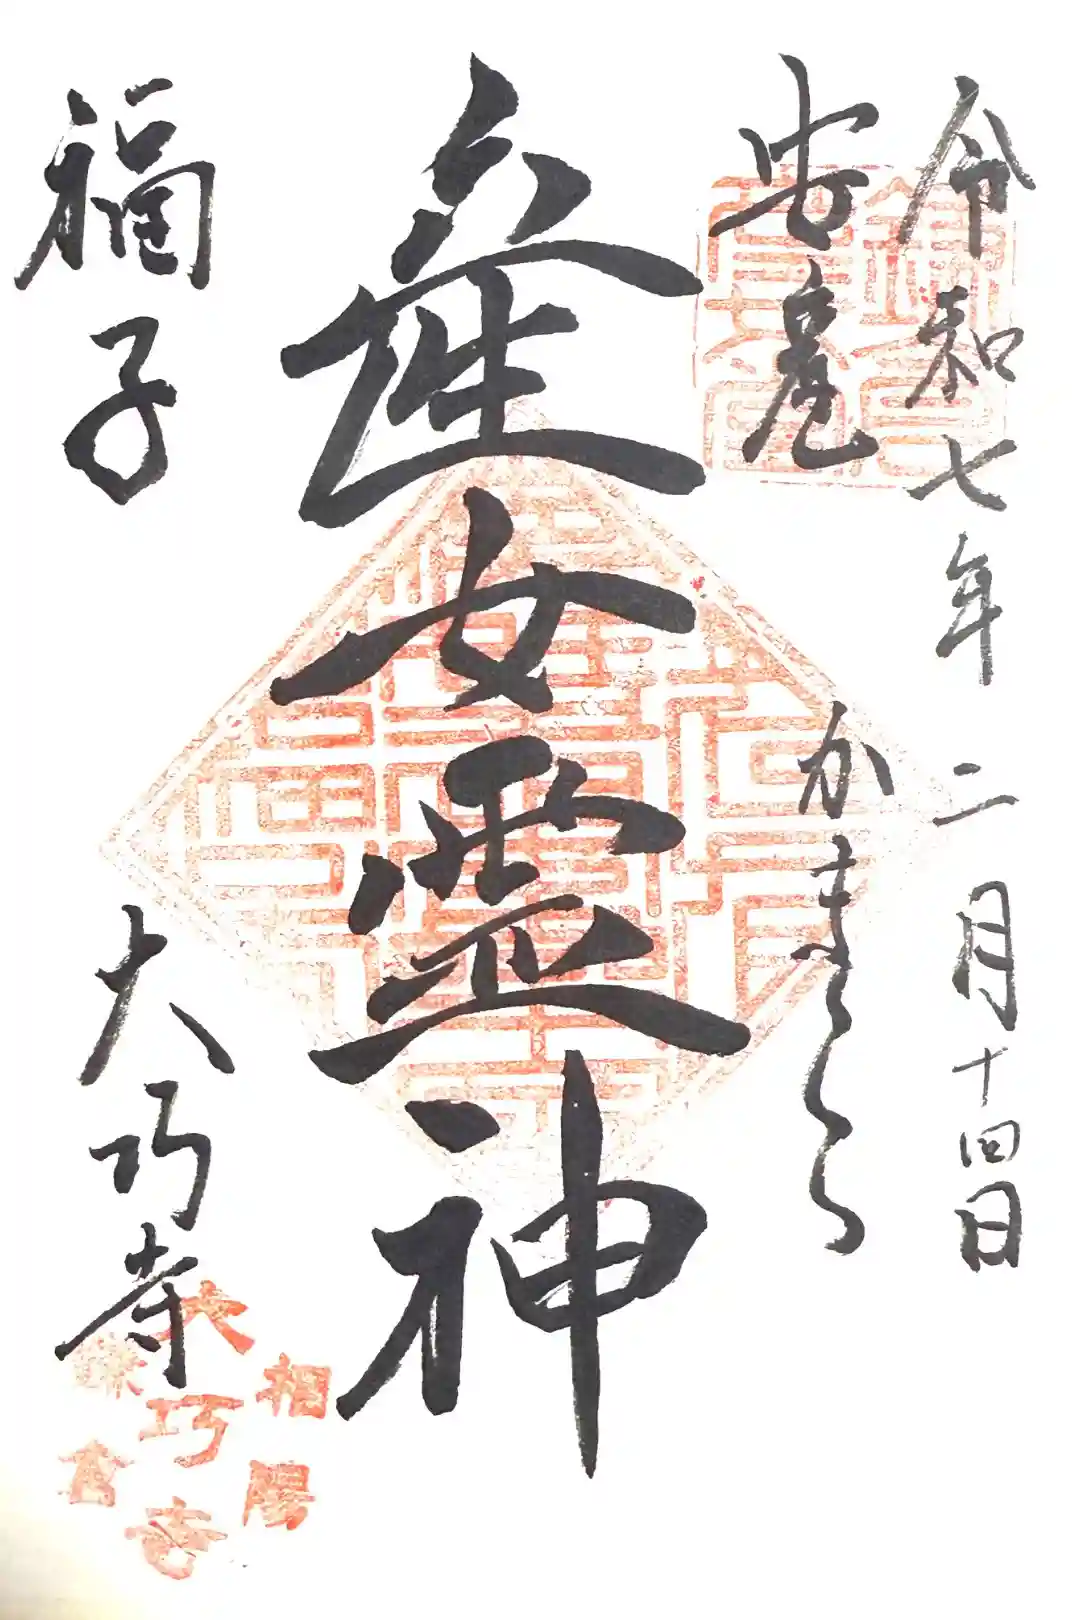 令和七年二月十四日
安産
かまくら
産女霊神
福子
大巧寺
相陽
大巧寺
鎌倉